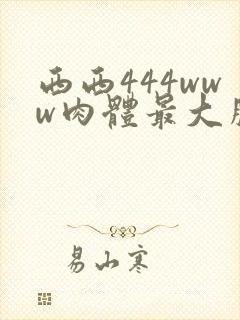 西西444ww
w肉體最大
易山寒